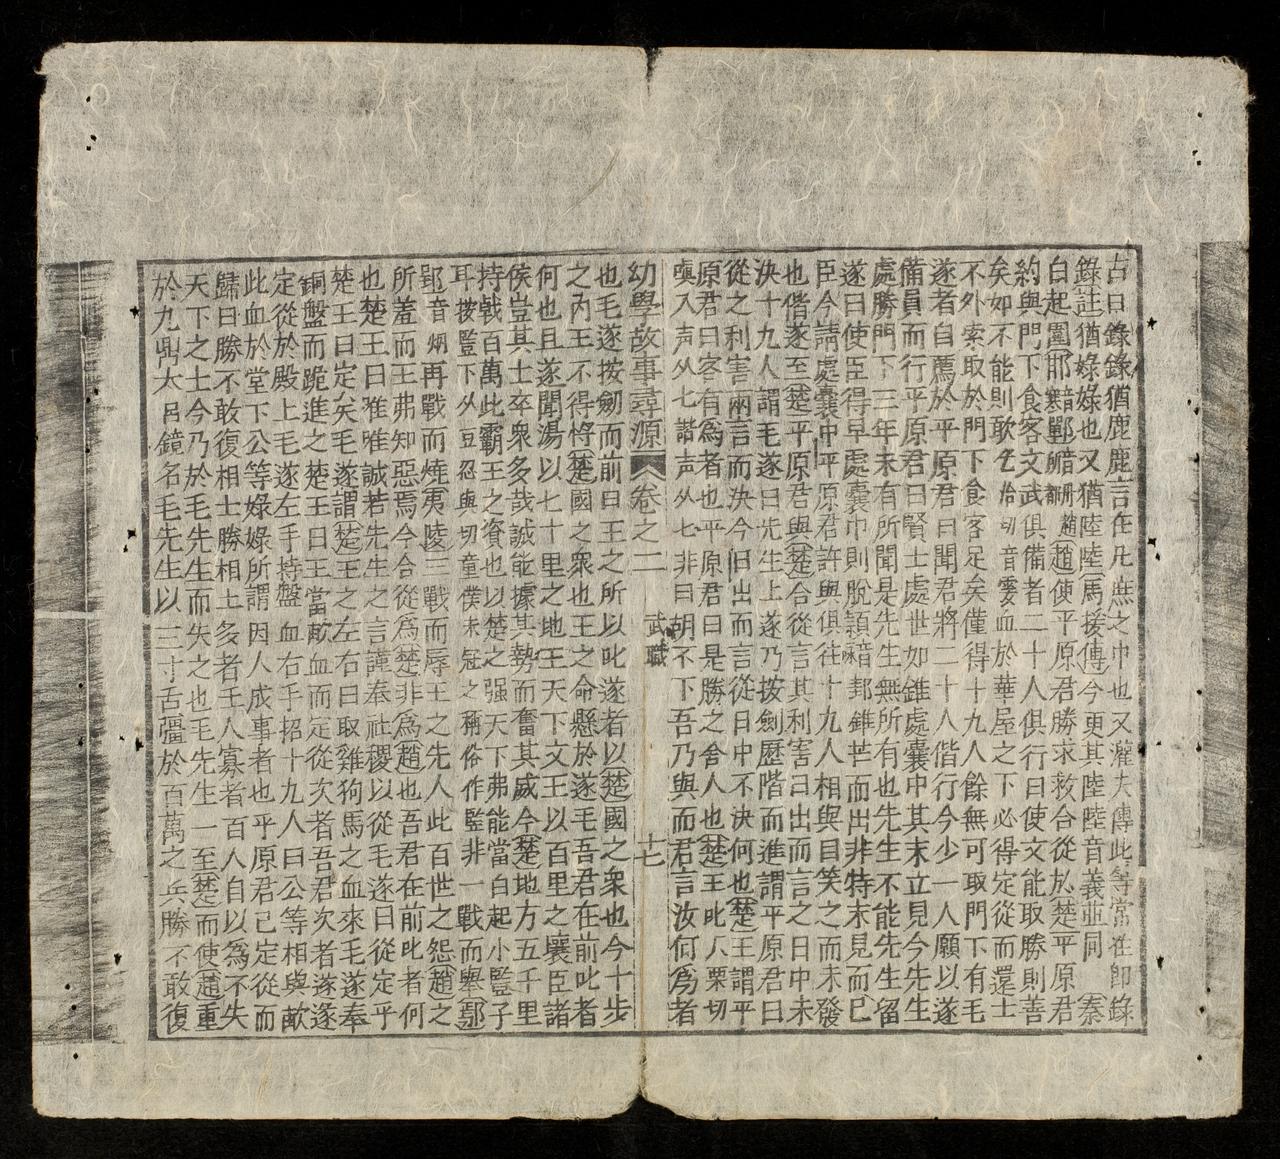 古曰錄錄猶鹿鹿言在凡庶之中也又灌夫傳此等常在即錄
錄註猶娽娽也又猶陸陸馬援傳今更共陸陸音義並同 秦
白起圍邯音寒鄲音丹所都趙趙使平原君勝求救合從於楚平原君
約與門下食客文武俱備者二十人俱行曰使文能取勝則善
矣如不能則歃乞洽切音霎血於華屋之下必得定從而還士
不外索取於門下食客足矣僅得十九人餘無可取門下有毛
遂者自薦於平原君曰聞君將二十人偕行今少一人願以遂
備員而行平原君曰賢士處世如錐處囊中其末立見今先生
處勝門下三年未有所聞是先生無所有也先生不能先生留
遂曰使臣得早處囊中則脫穎而出非特末見而已
臣今請處囊中平原君許與俱往十九人相與目笑之而未發
也偕遂至楚平原君與楚合從言其利害日出而言之日中未
決十九人謂毛遂曰先生上遂乃按劍歷階而進謂平原君曰
從之利害兩言而決今日出而言從日中不決何也楚王謂平
原君曰客有為者也平原君曰是勝之舍人也楚王叱尺栗切
嗔入声外七諧声外七非曰胡不下吾乃與而君言汝何為者
幼學故事尋源 卷之二 武職 十七
也毛遂按劒而前曰王之所以叱遂者以楚國之衆也今十步
之內王不得恃楚國之衆也王之命懸於遂毛吾君在前叱者
何也且遂聞湯以七十里之地王天下文王以百里之壤臣諸
侯豈其士卒衆多哉誠能據其勢而奮其威今楚地方五千里
持戟百萬此霸王之資也以楚之强天下弗能當白起小豎子
耳按豎下外豆忍與切童僕未冠之稱俗作竪非一戰而舉鄢
郢音烟再戰而燒夷陵三戰而辱王之先人此百世之怨趙之
所羞而王弗知惡焉今合從為楚非為趙也吾君在前叱者何
也楚王曰唯唯誠若先生之言謹奉社稷以從毛遂曰從定乎
楚王曰定矣毛遂謂楚王之左右曰取雞狗馬之血來毛遂奉
銅盤而跪進之楚王曰王當歃血而定從次者吾君次者遂遂
定從於殿上毛遂左手持盤血右手招十九人曰公等相與歃
此血於堂下公等娽娽所謂因人成事者也平原君已定從而
歸曰勝不敢復相士勝相士多者千人寡者百人自以為不失
天下之士今乃於毛先生而失之也毛先生一至楚而使趙重
於九鼎大呂鏡名毛先生以三寸舌彊於百萬之兵勝不敢復